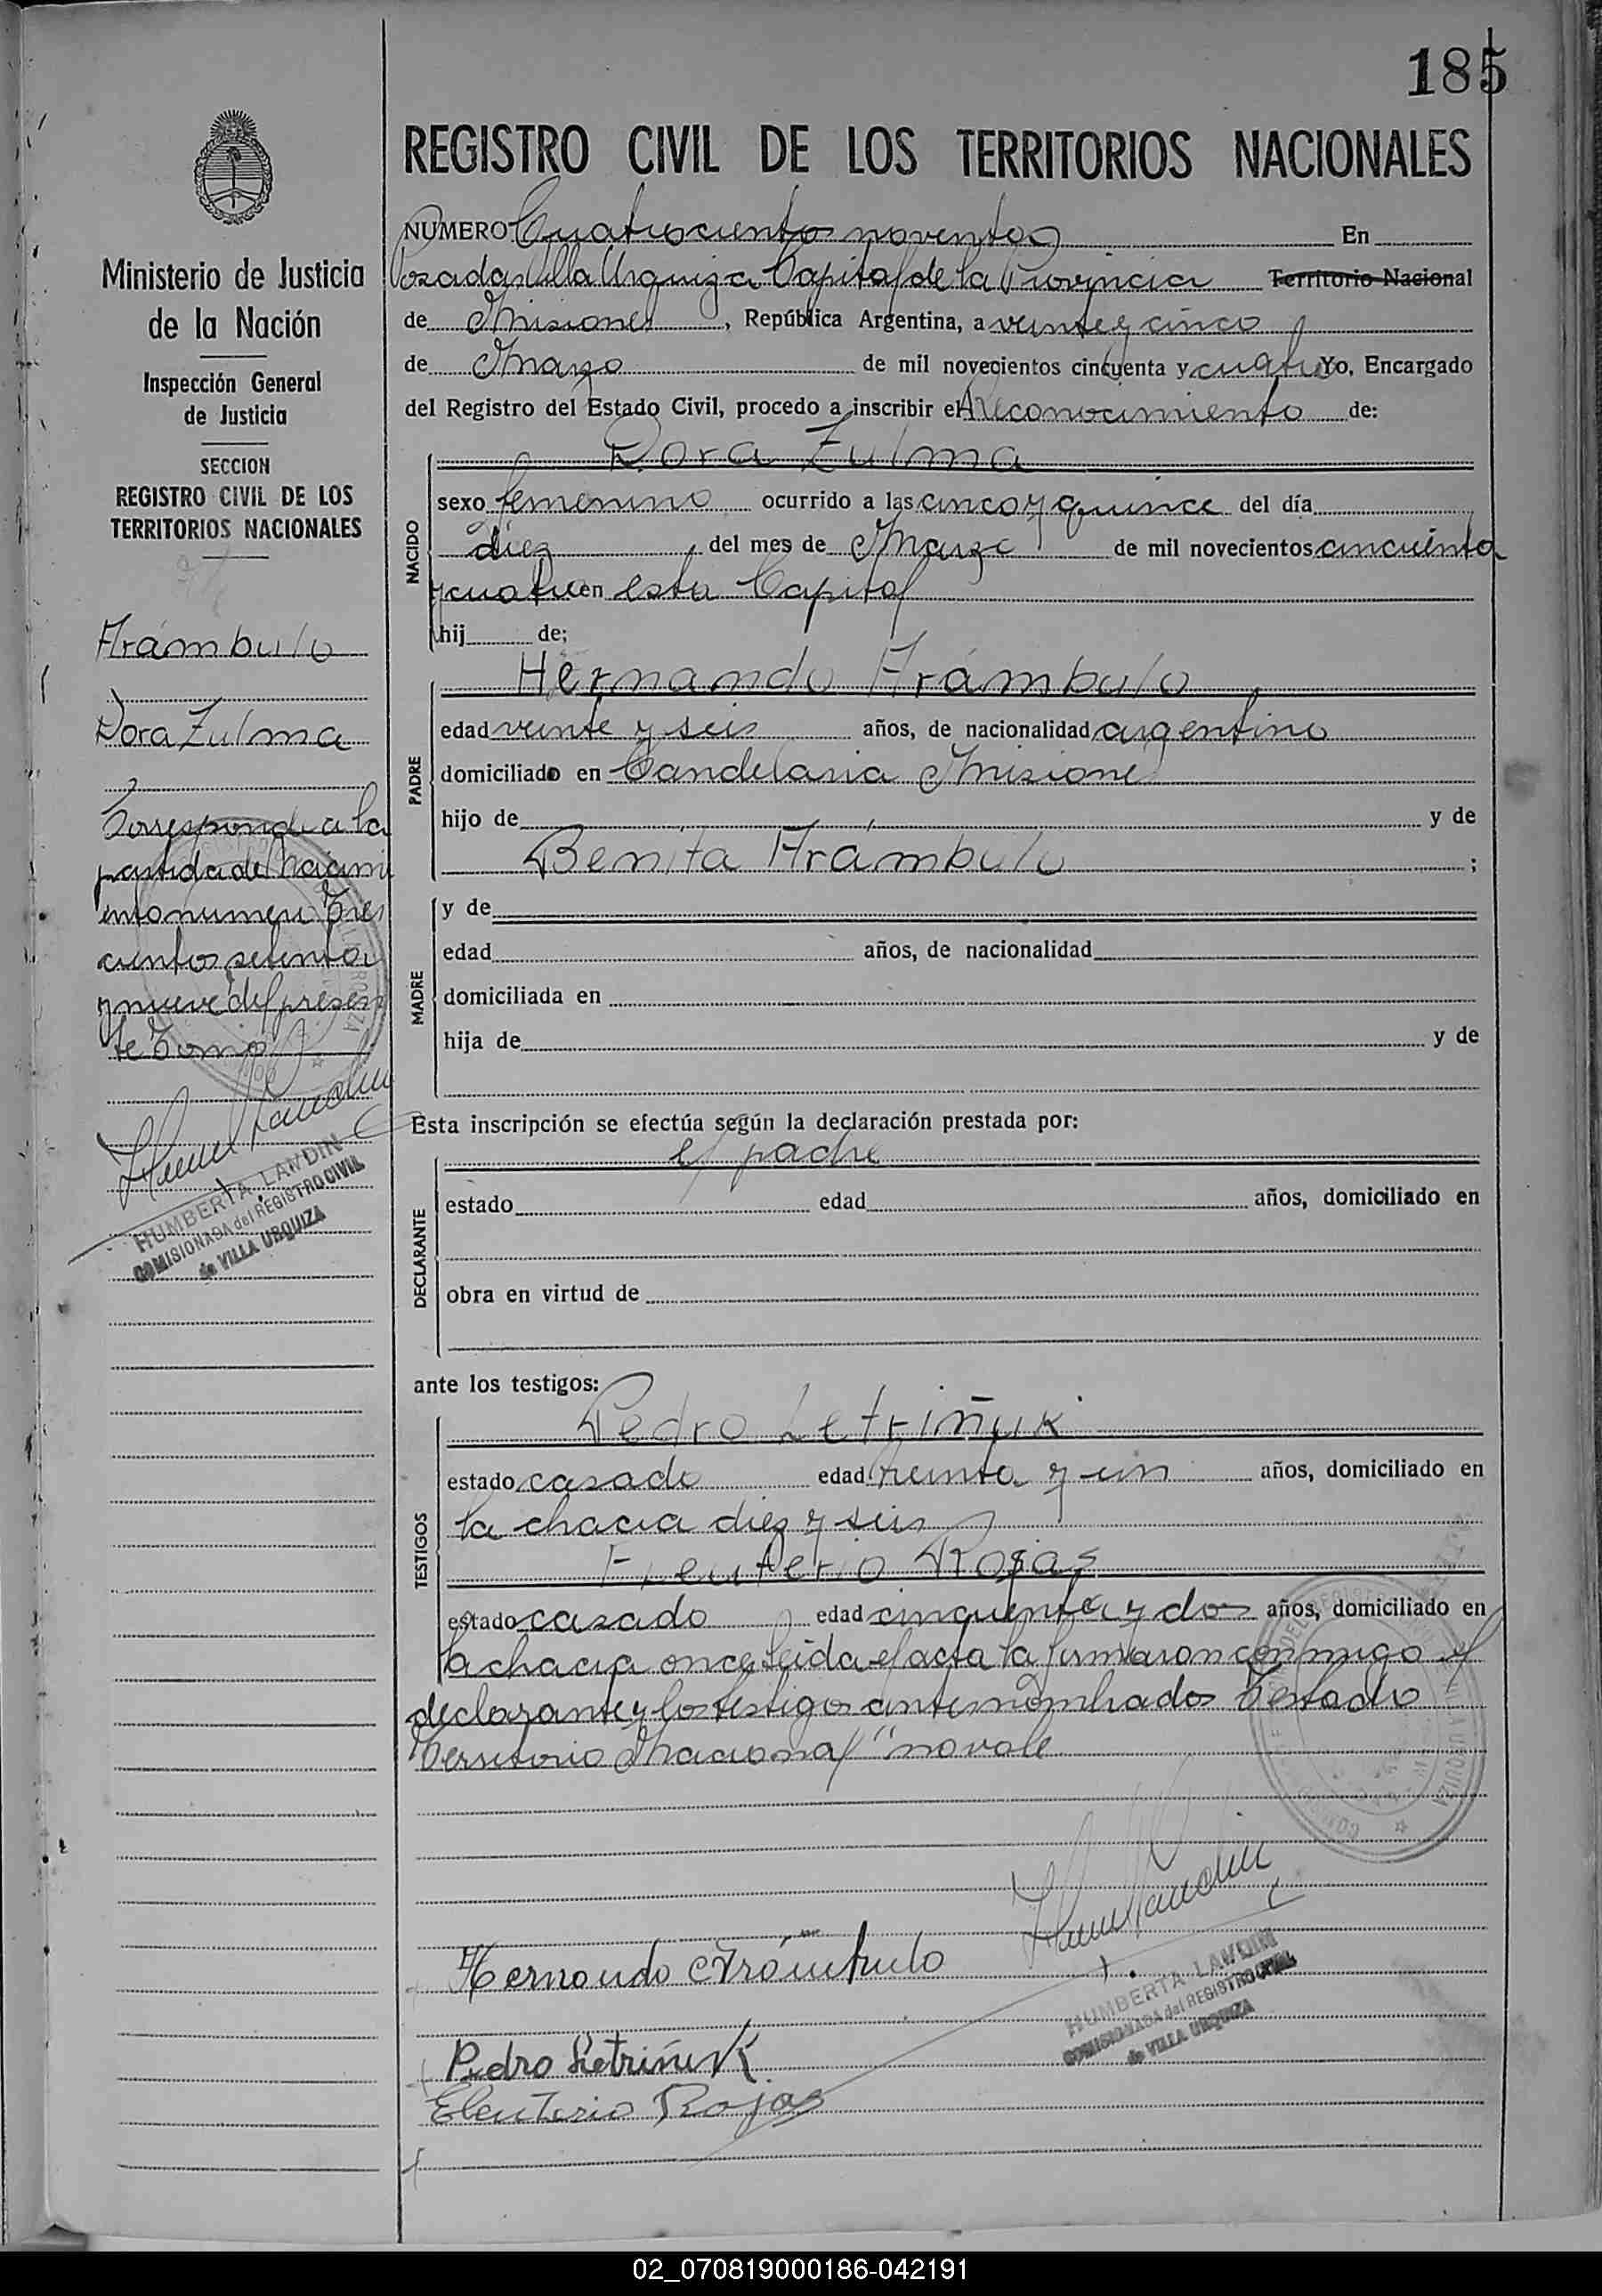 185
REGISTRO CIVIL DE LOS TERRITORIOS NACIONALES
Ministerio de Justicia
de la Nación
Inspección General
de Justicia
SECCION
REGISTRO CIVIL DE LOS
TERRITORIOS NACIONALES
Arámbulo
Dora Zulma
Corresponde a la
partida de Nacimi
ento numero Tres
cientos setenta
y nueve del presen
te Tomo
HUMBERTA LANDIN
COMISIONADA del REGISTRO CIVIL
de VILLA URQUIZA
NUMERO Cuatrocientos noventa En
Posadas Villa Urquiza Capital de la Provincia Territorio Nacional
de Misiones, República Argentina, a veinte y cinco
de Marzo de mil novecientos cincuenta y cuatro Yo, Encargado
del Registro del Estado Civil, procedo a inscribir el Reconocimiento de:
NACIDO
Dora Zulma
sexo femenino ocurrido a las cinco y quince del día
diez del mes de Marzo de mil novecientos cincuenta
y cuatro en esta Capital
hij de;
PADRE
Hernando Arámbulo
edad veinte y seis años, de nacionalidad argentino
domiciliado en Candelaria Misiones
hijo de y de
Benita Arámbulo ;
MADRE
y de
edad años, de nacionalidad
domiciliada en
hija de y de
Esta inscripción se efectúa según la declaración prestada por:
DECLARANTE
el padre
estado edad años, domiciliado en
obra en virtud de
ante los testigos:
TESTIGOS
Pedro Letriñuk
estado casado edad treinta y un años, domiciliado en
la chacra diez y seis
Eleuterio Rojas
estado casado edad cinquenta y dos años, domiciliado en
la chacra once Leida el acta la firmaron conmigo el
declarante y los testigos antes nombrados Testado
"Territorio Nacional" no vale
Hernando Arámbulo
HUMBERTA LANDIN
COMISIONADA del REGISTRO CIVIL
de VILLA URQUIZA
Pedro Letriñuk
Eleuterio Rojas
02_070819000186-042191